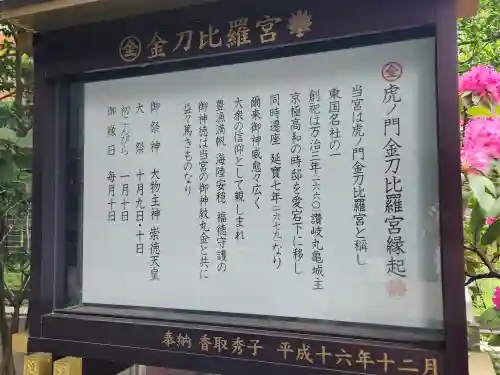 金 金刀比羅宮
金 虎ノ門 金刀比羅宮縁起
当宮は虎ノ門金刀比羅宮と称し
東国名社の一
創祀は万治三年一六六〇讃岐丸亀城主
京極高和の時邸を愛宕下に移し
同時遷座 延寶七年一六七九なり
爾来御神威愈々広く
大衆の信仰として親しまれ
豊漁満帆 海陸安穏 福徳守護の
御神徳は当宮の御神紋丸金と共に
益々篤きものなり
御祭神 大物主神・崇徳天皇
大祭 十月九日・十日
初こんぴら 一月十日
御縁日 毎月十日
奉納 香取秀子 平成十六年十二月